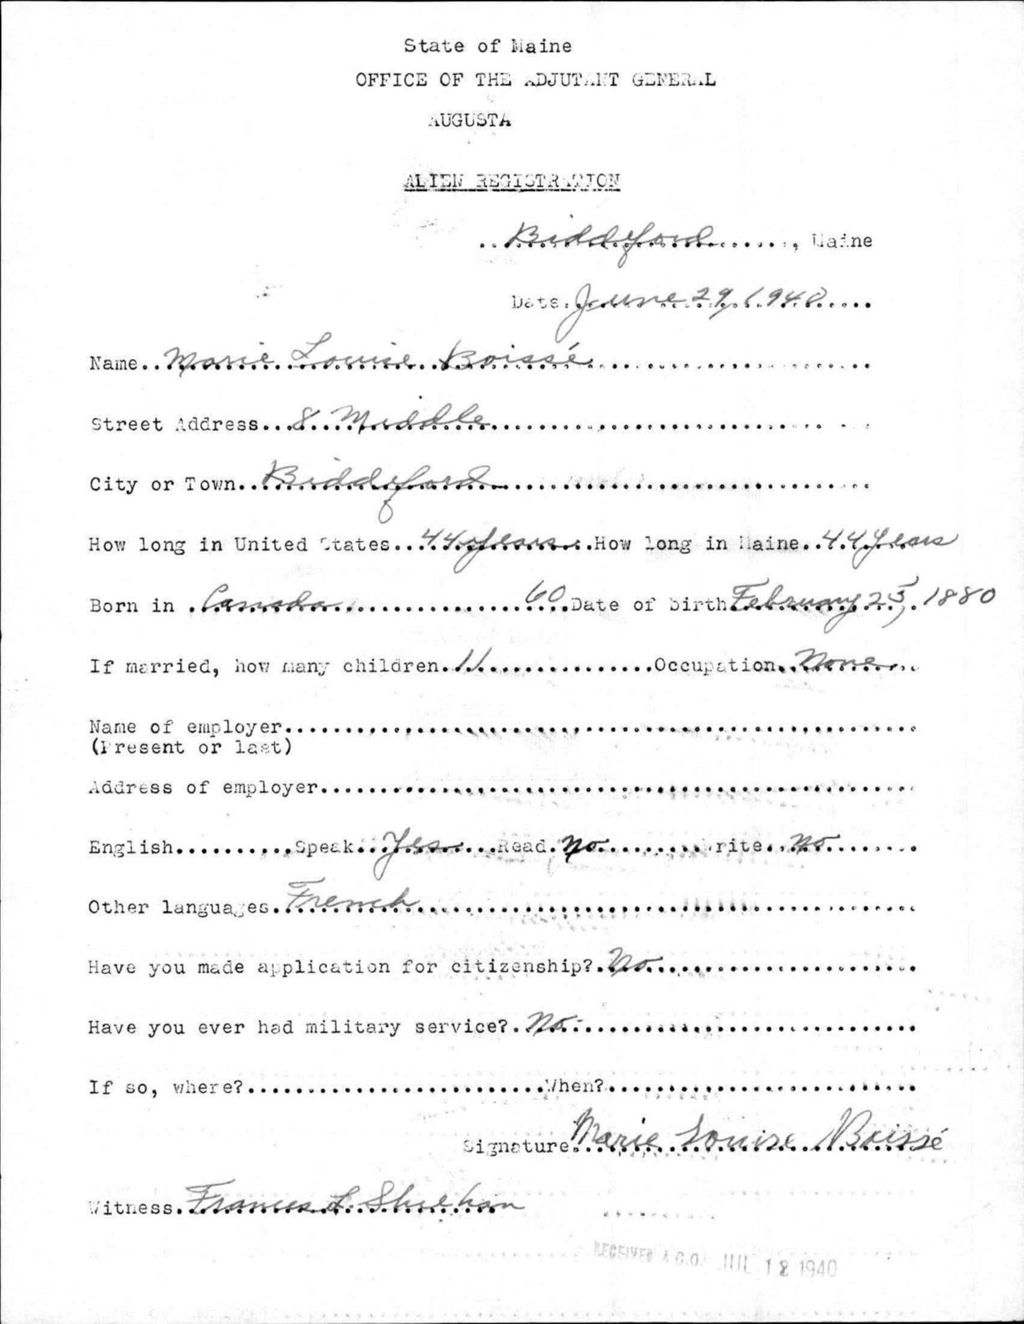 State of Maine
OFFICE OF THE ADJUTANT GENERAL
AUGUSTA
ALIEN REGISTRATION
Biddeford, Maine
Date. June 29, 1940
Name.. Marie Louise Boissé
Street Address... 8 Middle
City or Town.. Biddeford
How long in United States... 44 years ..How long in Maine.. 44 years
Born in . Canada 60 .Date of birth February 25, 1880
If married, how many children.. 11 Occupation.. None
Name of employer
(Present or last)
Address of employer
English..........Speak.. Yes ...Read. No Write.. No
Other languages. French
Have you made application for citizenship?. No
Have you ever had military service?. No-
If so, where? When?
Signature. Marie Louise Boissé
Witness. Francis L. Sheehan
RECEIVED A.G.O. JUL 12 1940